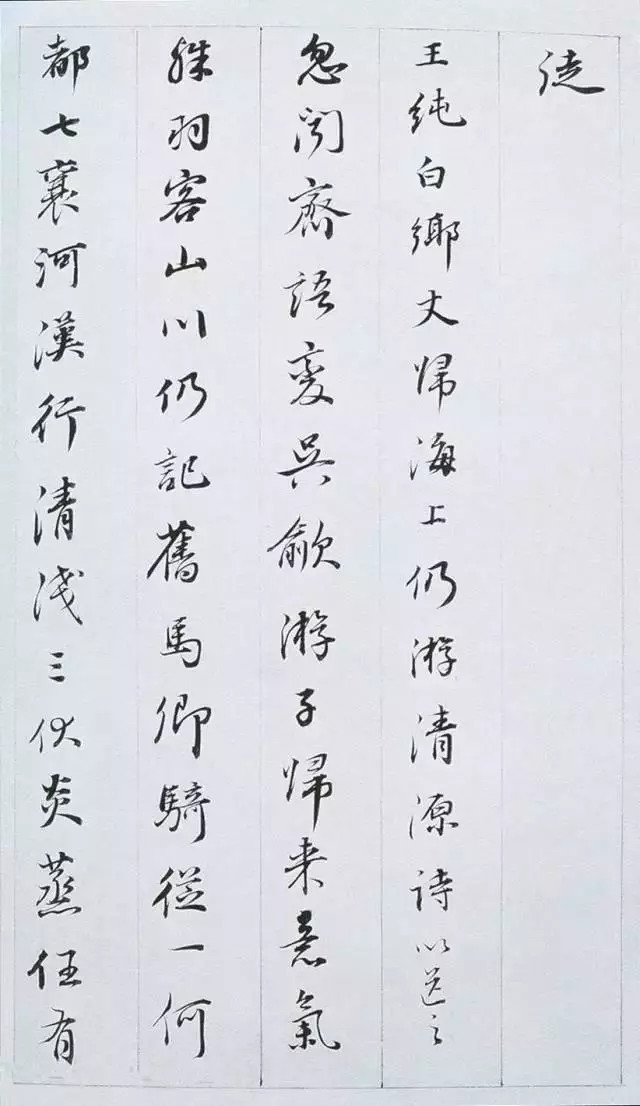 徒
王純白鄉丈歸海上仍游清源詩以送之
忽聞齊語變吳歈游子歸来意氣
殊羽客山川仍記舊馬卿騎從一何
都七襄河漢行清淺三伏炎蒸任有